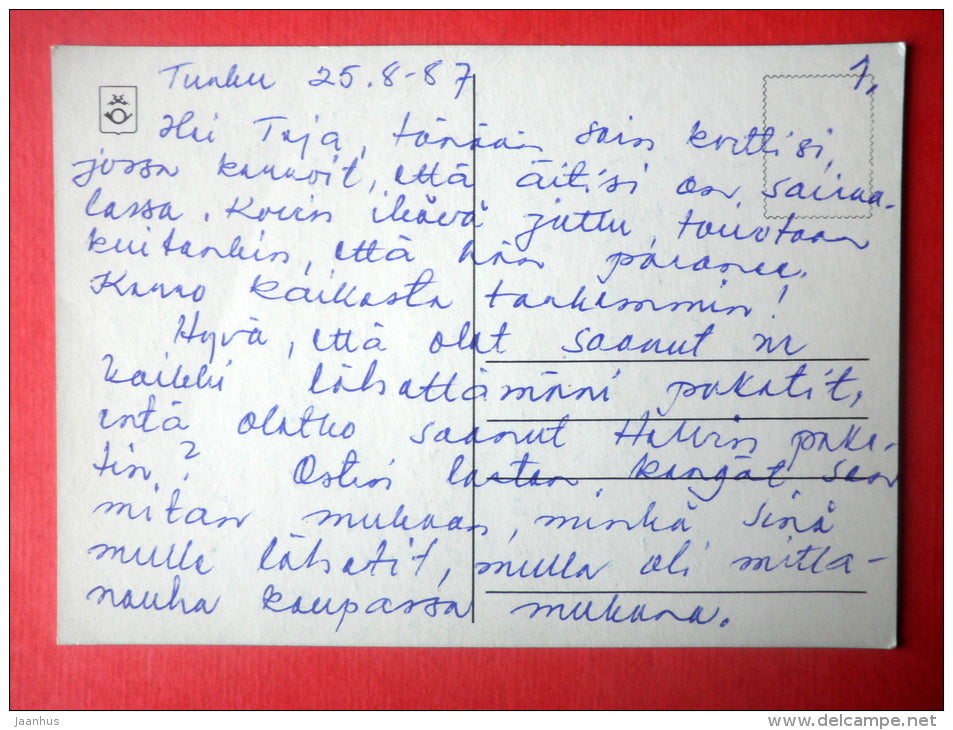 Turku 25.8-87
1.
Hei Taja, tänään sain korttisi,
jossa kerroit, että äitisi on sairaa-
lassa. Kovin ikävä juttu, toivotaan
kuitenkin, että hän paranee.
Kerro kaikesta tarkemmin!
Hyvä, että olet saanut ne
kaikki lähettämäni paketit,
entä oletko saanut Halvin pake-
tin? Ostin lasten kengät sen
mitan mukaan, minkä sinä
mulle lähetit, mulla oli mitta-
nauha kaupassa mukana.
Jaanhus
www.delcampe.net